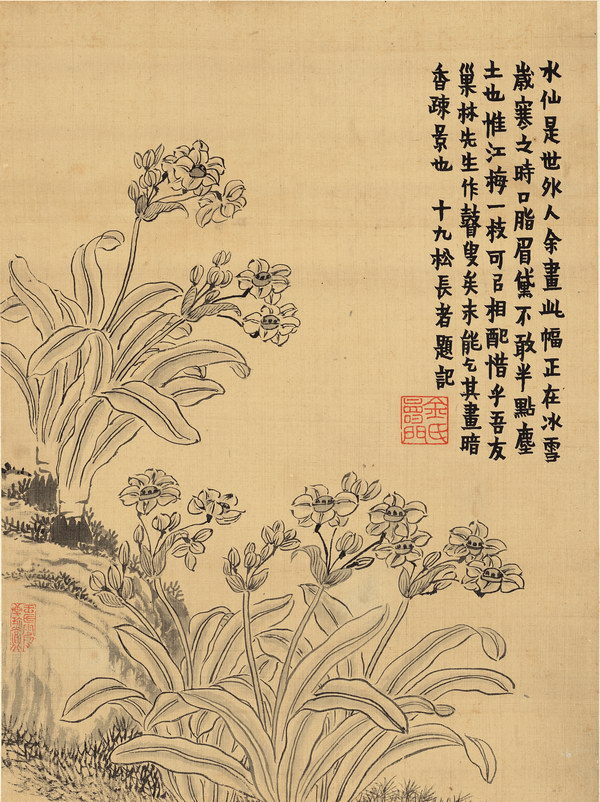 水仙是世外人余畫此幅正在冰雪
嵗寒之時口脂眉黛不敢半點塵
土也惟江梅一枝可㠯相配惜乎吾友
巢林先生作瞽叟矣未能乞其畫暗
香疎景也 十九松長者題記
金氏壽門